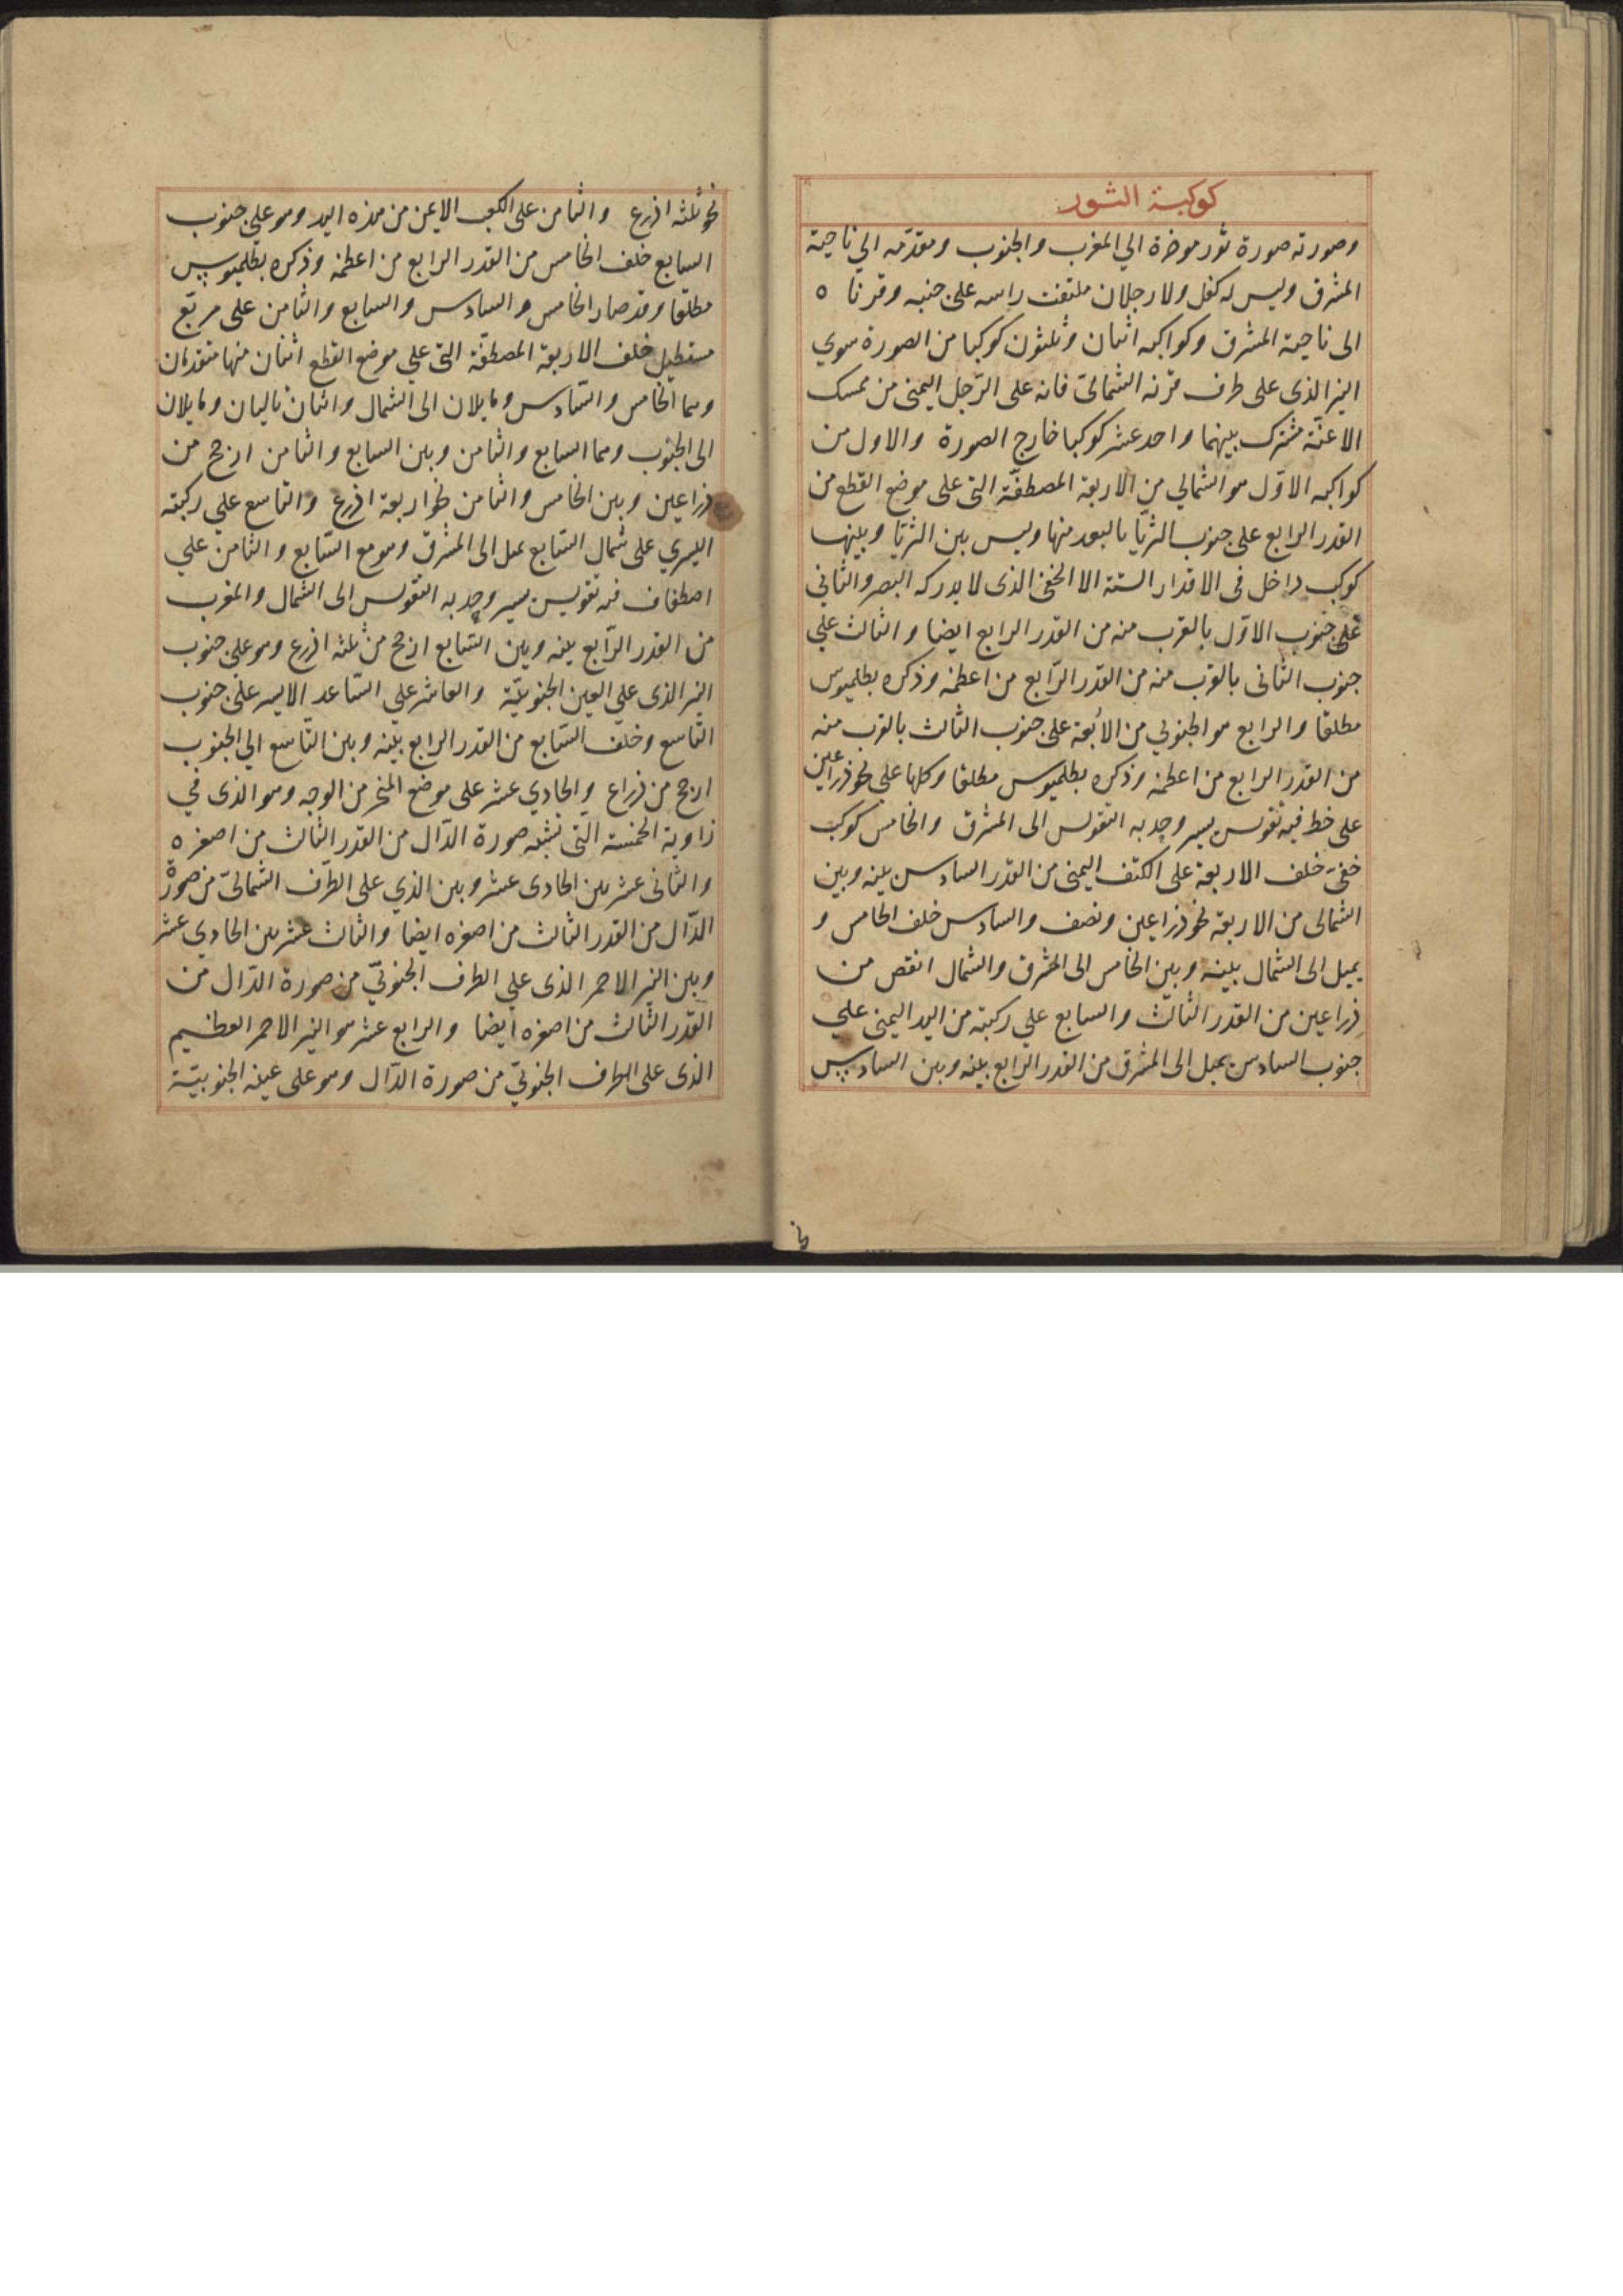 كوكبة الثور
وصورته صورة ثور موخرة الي المغرب والجنوب ومقدمه الي ناحية
المشرق وليس له كفل ولا رجلان ملتفت راسه على جنبه وقرناه
الى ناحية المشرق وكواكبه اثنان وثلثون كوكبا من الصورة سوي
النير الذى على طرف قرنه الشمالىّ فانه على الرّجل اليمنى من ممسك
الاعنّة مشترك بينهما واحد عشر كوكبا خارج الصورة والاول من
كواكبه الاوّل هو الشمالي من الاربعة المصطفّة التى على موضع القطع من
القدر الرابع على جنوب الثريّا بالبعد منها وليس بين الثريّا وبينها
كوكب داخل فى الاقدار الستة الا الخفىّ الذى لا يدركه البصر والثاني
على جنوب الاوّل بالقرب منه من القدر الرابع ايضا والثالث علي
جنوب الثانى بالقرب منه من القدر الرّابع من اعظمه وذكره بطلميوس
مطلقا والرابع هو الجنوبي من الأبعة على جنوب الثالث بالقرب منه
من القدر الرابع من اعظمه وذكره بطلميوس مطلقا وكلها على نحو ذراعين
على خط فيه تقوس يسير وحدبه التقوس الى المشرق والخامس كوكب
خفىّ خلف الاربعة على الكتف اليمنى من القدر السادس بينه وبين
الشمالى من الاربعة نحو ذراعين ونصف والسادس خلف الخامس و
يميل الى الشمال بينه وبين الخامس الى المشرق والشمال انقص من
ذراعين من القدر الثالث والسابع علي ركبته من اليد اليمنى علي
جنوب السادس يميل الى المشرق من القدر الرابع بينه وبين السادس
نحو ثلثه اذرع والثامن على الكعب الايمن من هذه اليد وهو علي جنوب
السابع خلف الخامس من القدر الرابع من اعظمه وذكره بطلميوس
مطلقا وقد صار الخامس والسادس والسابع والثامن على مربّع
مستطيل خلف الاربعة المصطفّة التى علي موضع القطع اثنان منها متقدمان
وهما الخامس والسّادس ومايلان الى الشمال واثنان تاليان ومايلان
الى الجنوب وهما السابع والثامن وبين السابع والثامن ارجح من
ذراعين وبين الخامس والثامن نحو اربعة اذرع والتاسع علي ركبته
اليسري على شمال السّابع يميل الى المشرق وهو مع السّابع والثامن علي
اصطفاف فيه تقويس يسير وحدبه التقوس الى الشمال والمغرب
من القدر الرّابع بينه وبين السّابع ارجح من ثلثه اذرع وهو على جنوب
النير الذى علي العين الجنوبيّة والعاشر علي السّاعد الايسر على جنوب
التّاسع وخلف السّابع من القدر الرابع بينه وبين التّاسع الي الجنوب
ارجح من ذراع والحادي عشر على موضع المنخر من الوجه وهو الذى في
زاوية الخمسة التى تشبه صورة الدّال من القدر الثالث من اصغره
والثانى عشر بين الحادى عشر وبين الذي على الطّرف الشمالىّ من صورة
الدّال من القدر الثالث من اصغره ايضا والثالث عشر بين الحادي عشر
وبين النير الاحمر الذى علي الطرف الجنوبيّ من صورة الدّال من
القدر الثالث من اصغره ايضا والرابع عشر هو النير الاحمر العظيم
الذى على الطرف الجنوبيّ من صورة الدّال وهو على عينه الجنوبيّة